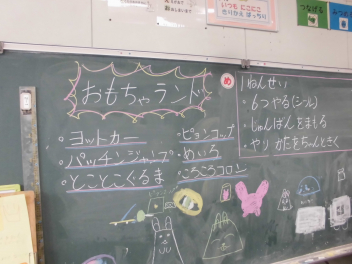 いつも にこにこ
きりかえ ばっちり
つなげる
おもちゃランド
・ヨットカー
・パッチンジャンプ
・とことこぐるま
・ピョンコップ
・めいろ
・ころころコロン
め
1ねんせい
・6つやる(シール)
・じゅんばんをまもる
・やりかたをちゃんときく